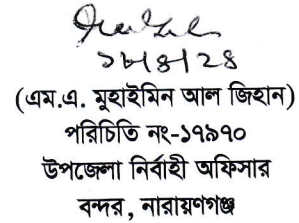 ১৮/৪/২৪
(এম.এ. মুহাইমিন আল জিহান)
পরিচিতি নং-১৭৯৭০
উপজেলা নির্বাহী অফিসার
বন্দর, নারায়ণগঞ্জ